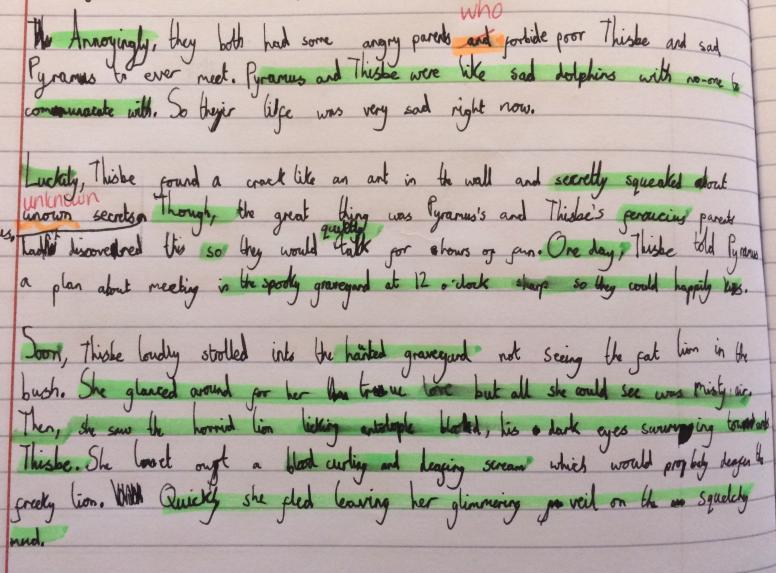 who
Annoyingly, they both had some angry parents and forbide poor Thisbe and sad
Pyramus to ever meet. Pyramus and Thisbe were like sad dolphins with no-one to
communacate with. So their life was very sad right now.
Luckily, Thisbe found a crack like an ant in the wall and secretly squeaked about
unknown
unown secrets. Though, the great thing was Pyramus's and Thisbe's feroucius parents
quietly
discovered this so they would talk for hours of fun. One day, Thisbe told Pyramus
a plan about meeting in the spooky graveyard at 12 o'clock sharp so they could happily kiss.
Soon, Thisbe loudly strolled into the haunted graveyard not seeing the fat lion in the
bush. She glanced around for her true love but all she could see was misty air.
Then, she saw the horrid lion licking antalople blood, his dark eyes towards
Thisbe. She let out a blood curling and deafing scream which would the
freeky lion. Quickly she fled leaving her glimmering veil on the squelchy
mud.